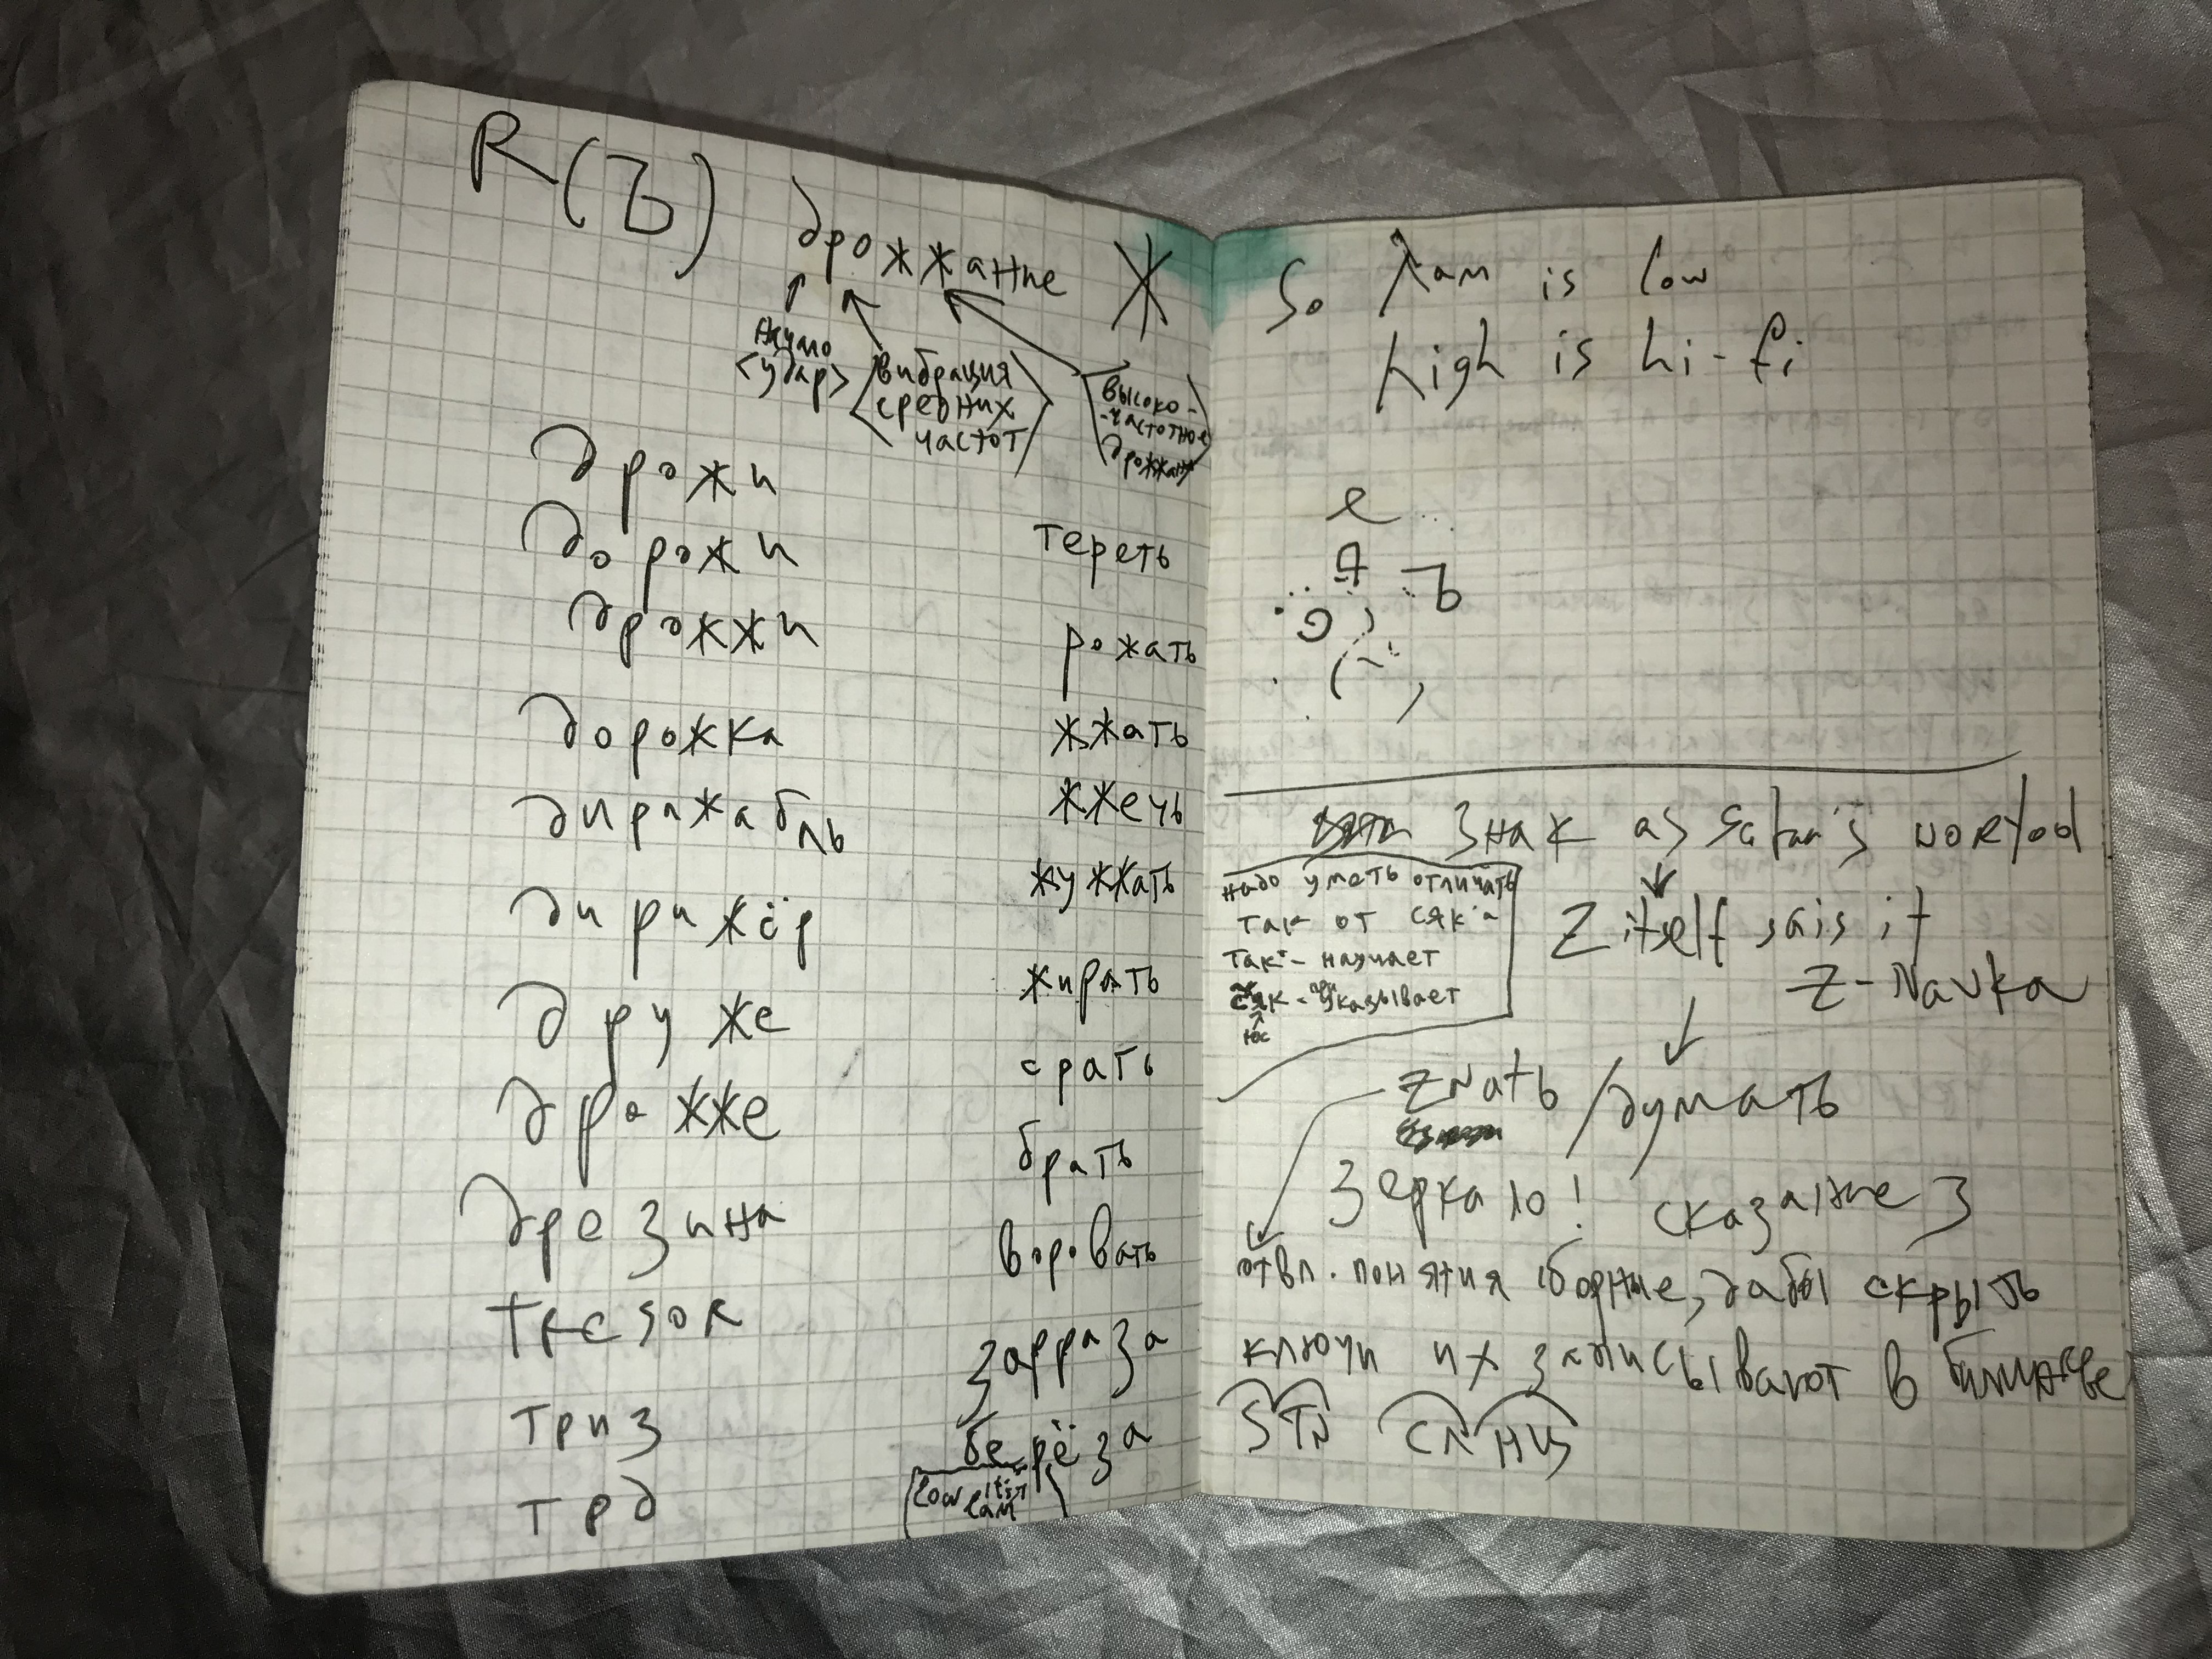 R(Ъ) дрожжание Ж
начало
<удар>
<вибрация
средних
частот>
<высоко-
-частотное
дрожжание>
дрожи
дорожи
дрожжи
дорожка
диражабль
дирижёр
друже
дрожже
дрезина
трезоR
триз
трд
тереть
рожать
жжать
жжечь
жужжать
жирать
срать
брать
воровать
зарраза
берёза
low
лам
So λам is low
high is hi-fi
е
Я Ъ
знак as satan's
надо уметь отличать
так от сяк'а
так - научает
сяк - указывает
юс
Z itself sais it
Z-Navka
ZNatЬ / думать
Зеркало! сказание З
отвл. понятия сборные, дабы скрыть
ключи их записывают в
STN СЛНЦ